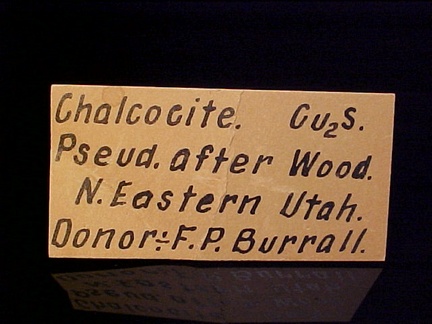 Chalcocite. Cu₂S.
Pseud. after Wood.
N. Eastern Utah.
Donor÷F.P. Burrall.